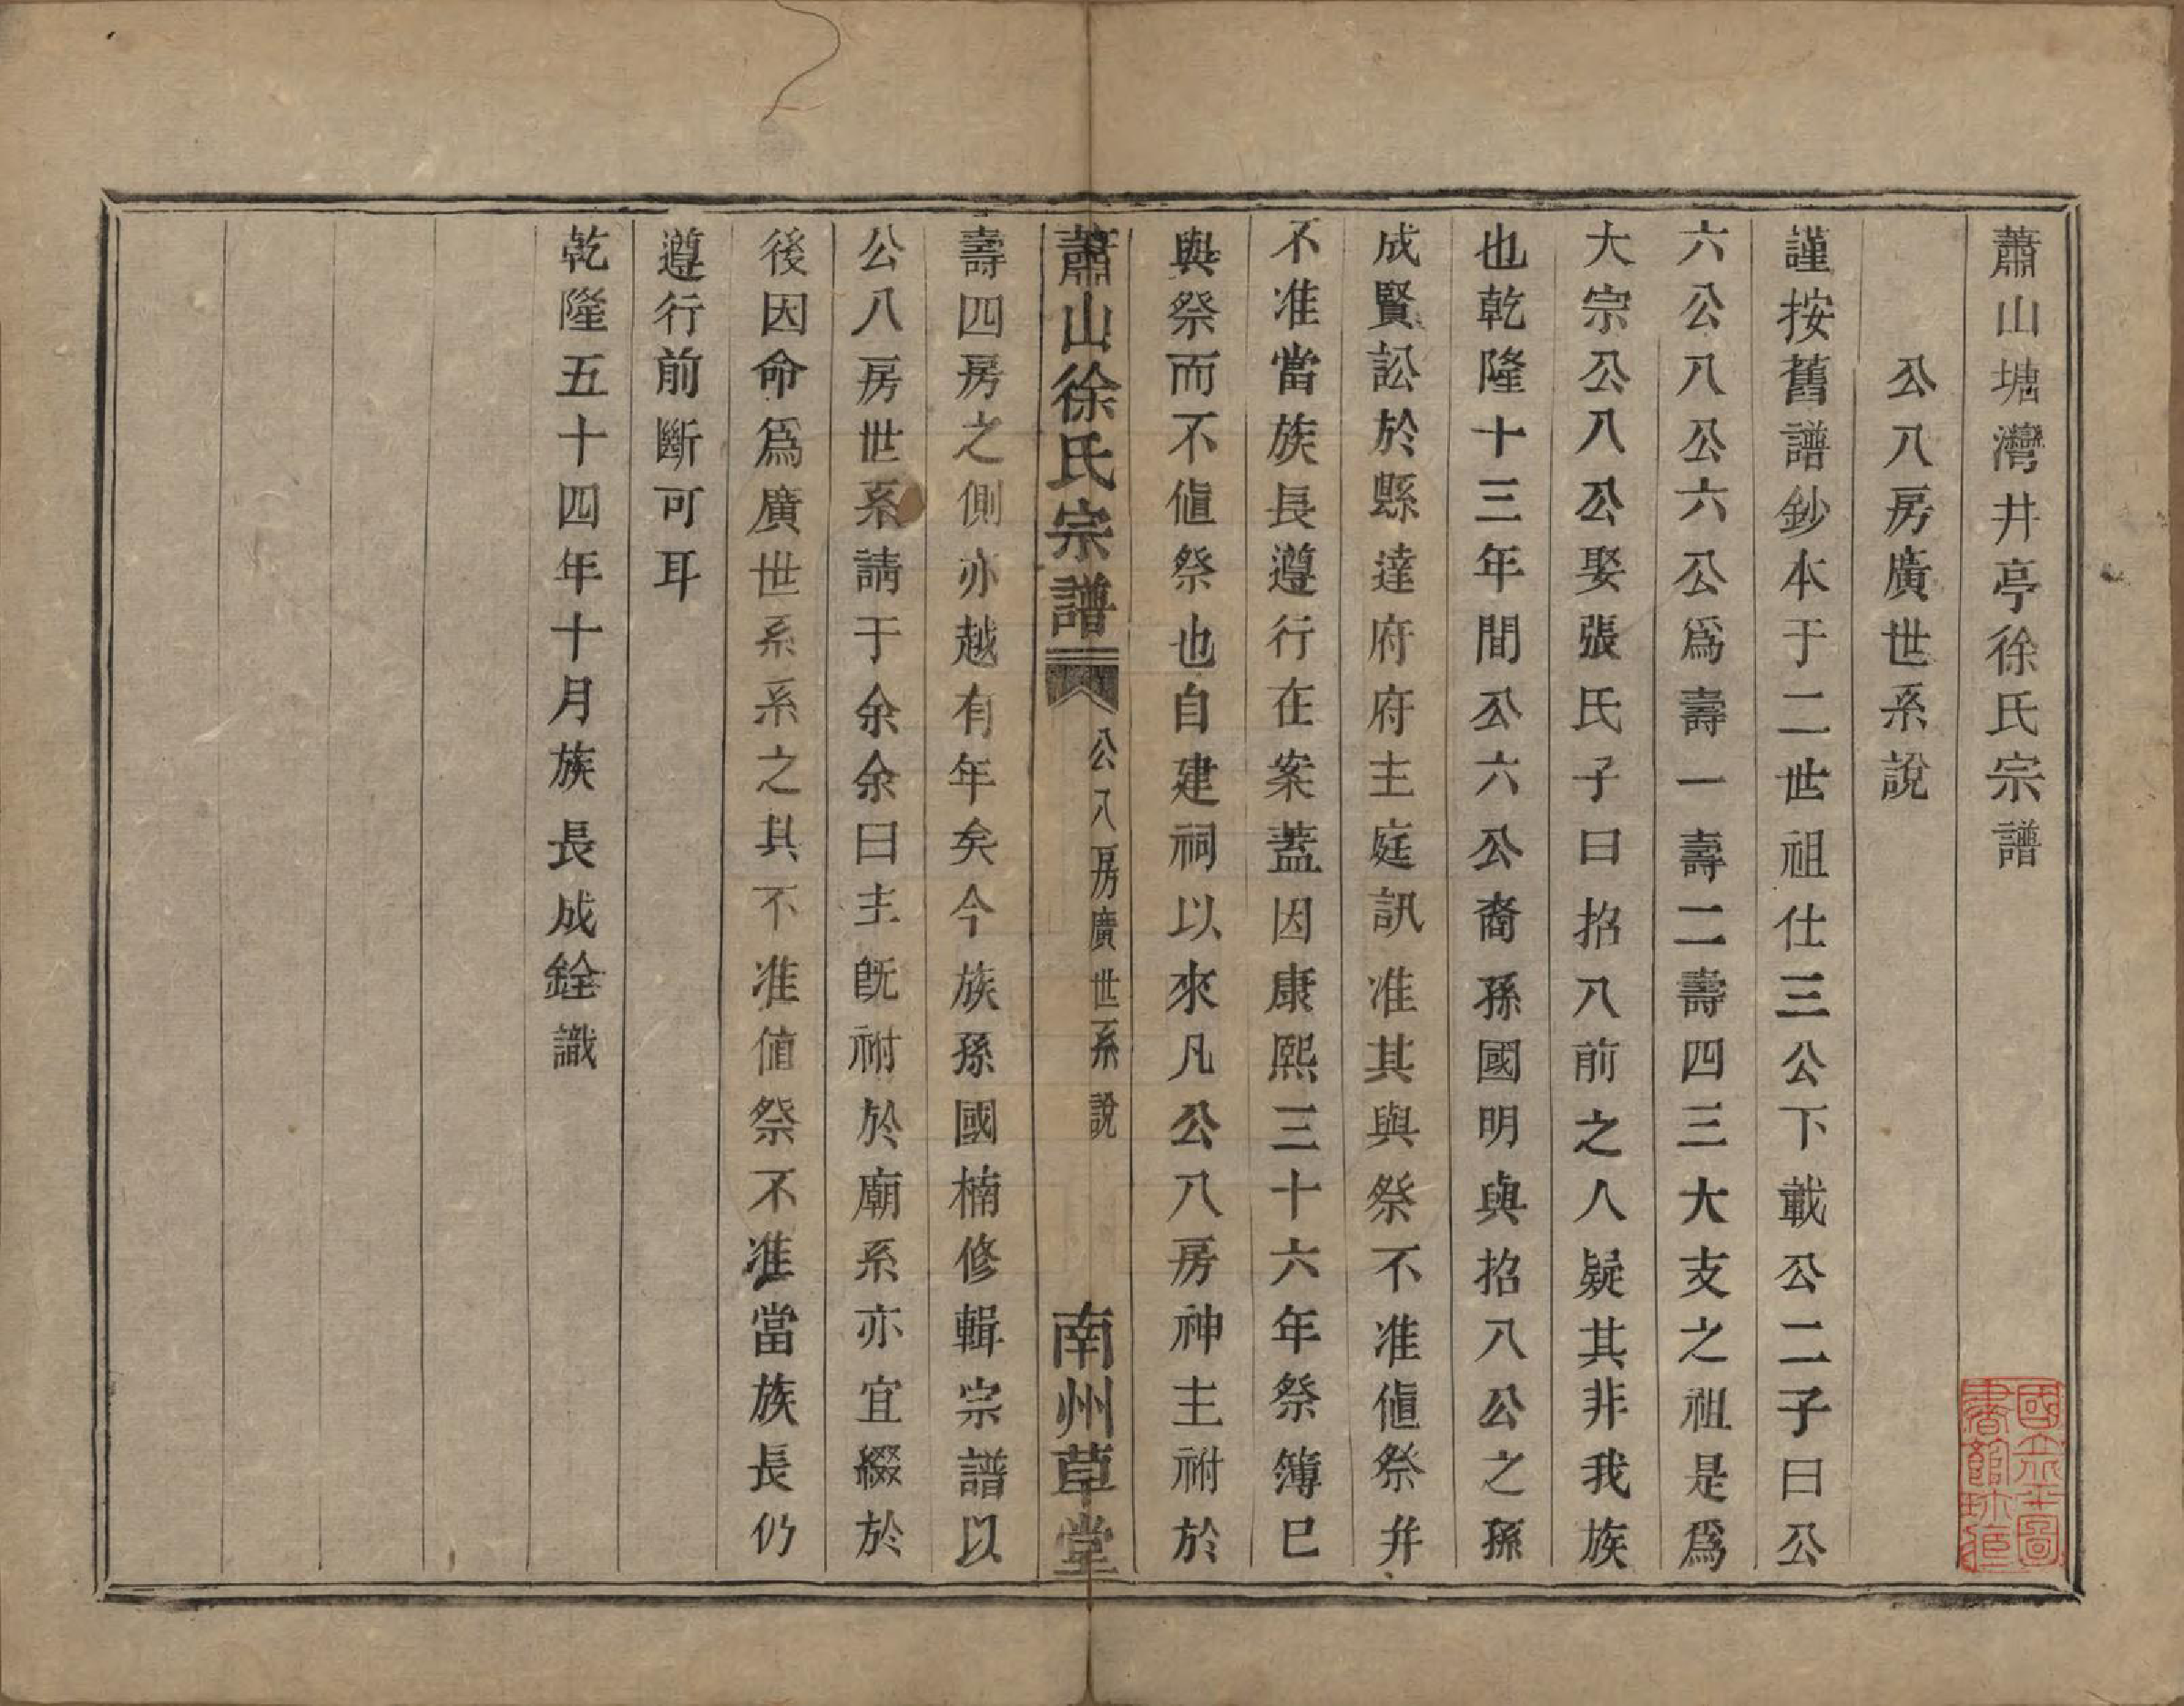 蕭山塘灣井亭徐氏宗譜
公八房廣世系說
謹按舊譜鈔本于二世祖仕三公下載公二子曰公
六公八公六公爲壽一壽二壽四三大支之祖是爲
大宗公八公娶張氏子曰招八前之人疑其非我族
也乾隆十三年間公六公裔孫國明與招八公之孫
成賢訟於縣達府府主庭訊准其與祭不准値祭并
不准當族長遵行在案蓋因康熙三十六年祭簿巳
與祭而不値祭也自建祠以來凡公八房神主祔於
蕭山徐氏宗譜 公八房廣世系說 南州草堂
壽四房之側亦越有年矣今族孫國楠修輯宗譜以
公八房世系請于余余曰主旣祔於廟系亦宜綴於
後因命爲廣世系系之其不准値祭不准當族長仍
遵行前斷可耳
乾隆五十四年十月族長成銓識
國立北平圖
書館珍藏